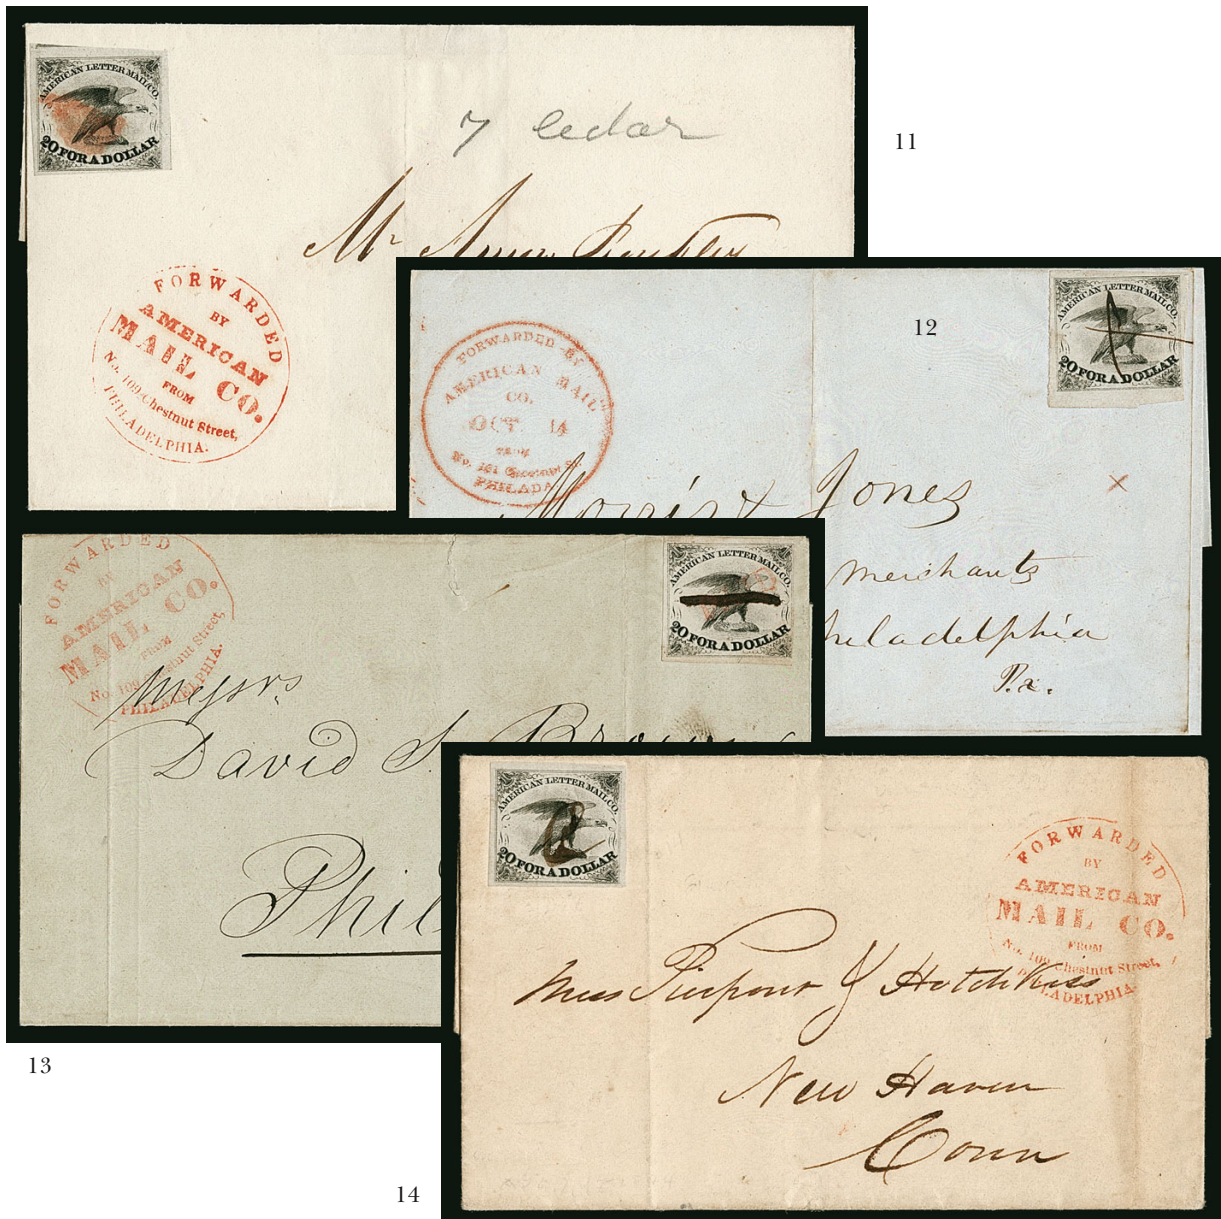 AMERICAN LETTER MAIL CO.
20 FOR A DOLLAR
7 Cedar
Mr
FORWARDED
BY
AMERICAN
MAIL CO.
FROM
No. 109 Chestnut Street,
PHILADELPHIA.
11
AMERICAN LETTER MAIL CO.
20 FOR A DOLLAR
12
FORWARDED BY
AMERICAN MAIL
CO.
OCT 14
FROM
No. 101 Chestnut St.
PHILADA
Morris & Jones
Merchants
Philadelphia
Pa.
FORWARDED
BY
AMERICAN
MAIL CO.
FROM
No. 109 Chestnut Street,
PHILADELPHIA.
AMERICAN LETTER MAIL CO.
20 FOR A DOLLAR
Messrs
David S. Brown
Phil
13
AMERICAN LETTER MAIL CO.
20 FOR A DOLLAR
FORWARDED
BY
AMERICAN
MAIL CO.
FROM
No. 109 Chestnut Street,
PHILADELPHIA.
Pierpont & Hotchkiss
New Haven
Conn
14